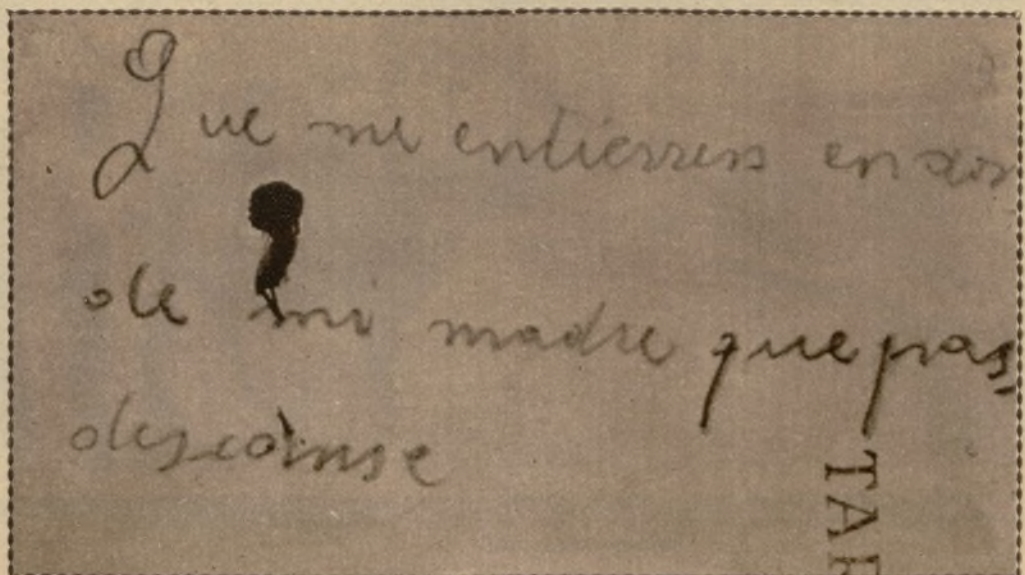 Que me entierren en
de mi madre que
descanse
TAR